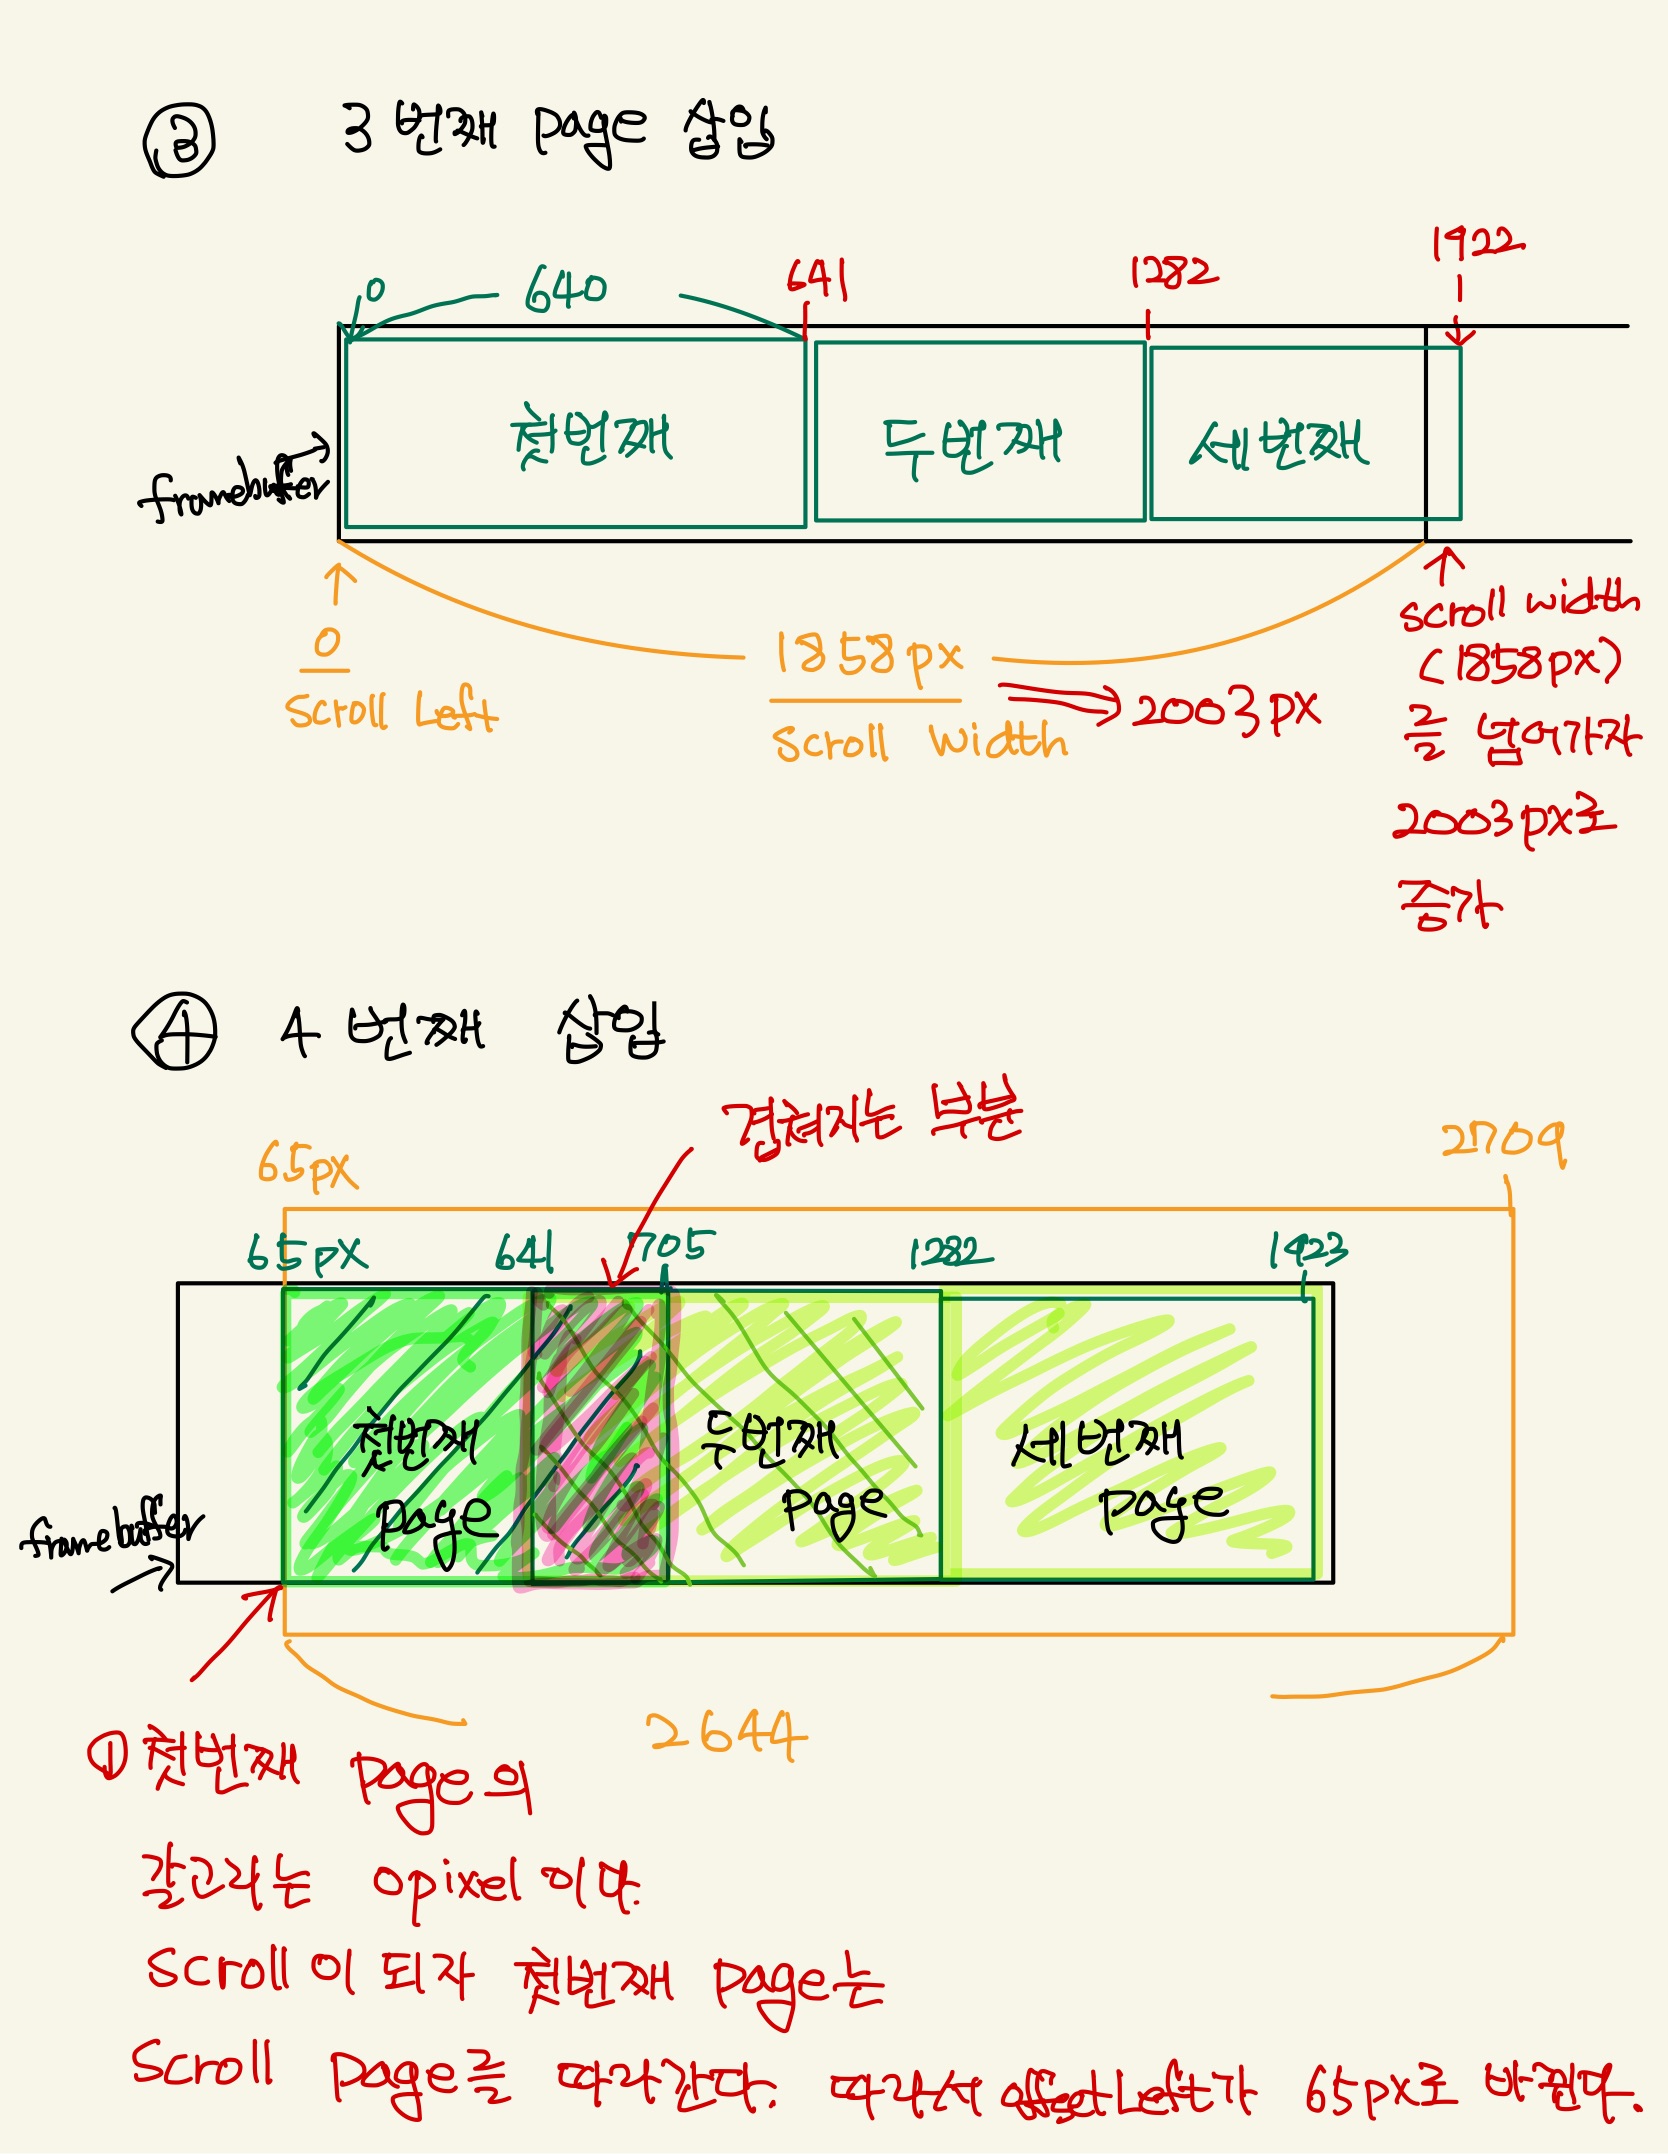 ③ 3번째 page 삽입
1922
0 640 641 1282
첫번째 두번째 세번째
framebuffer
0
Scroll Left
1858px
Scroll Width
2003px
scroll width
(1858px)
를 넘어가자
2003px로
증가
④ 4번째 삽입
겹쳐지는 부분
65px 2709
65px 641 705 1282 1423
첫번째
page
두번째
page
세번째
page
framebuffer
2644
① 첫번째 page의
갈고리는 0pixel 이다.
Scroll이 되자 첫번째 page는
Scroll page를 따라간다. 따라서 offsetLeft가 65px로 바뀐다.